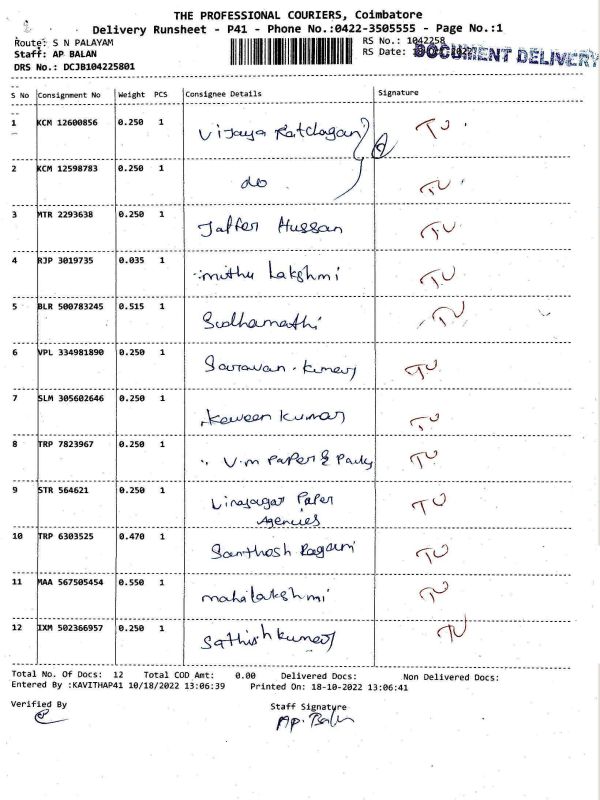 THE PROFESSIONAL COURIERS, Coimbatore
Delivery Runsheet - P41 - Phone No.:0422-3505555 - Page No.:1
Route: S N PALAYAM
RS No.: 1042258
Staff: AP BALAN
RS Date:
DOCUMENT DELIVERY
DRS No.: DCJB104225801
S No Consignment No Weight PCS Consignee Details Signature
1 KCM 12600856 0.250 1 Vijaya TU
2 KCM 12598783 0.250 1 do TU
3 MTR 2293638 0.250 1 Jaffer Hussan TU
4 RJP 3019735 0.035 1 mithu Lakshmi TU
5 BLR 500783245 0.515 1 Sudhamathi TU
6 VPL 334981890 0.250 1 Saravan kumar TU
7 SLM 305602646 0.250 1 Kaween kumar TU
8 TRP 7823967 0.250 1 V.m Paper & TU
9 STR 564621 0.250 1 Vinayagar Paper TU
Agencies
10 TRP 6303525 0.470 1 Santhosh Ragam TU
11 MAA 567505454 0.550 1 mahalakshmi TU
12 IXM 502366957 0.250 1 Sathish kumar TU
Total No. Of Docs: 12 Total COD Amt: 0.00 Delivered Docs: Non Delivered Docs:
Entered By :KAVITHAP41 10/18/2022 13:06:39 Printed On: 18-10-2022 13:06:41
Verified By Staff Signature
AP. Balan